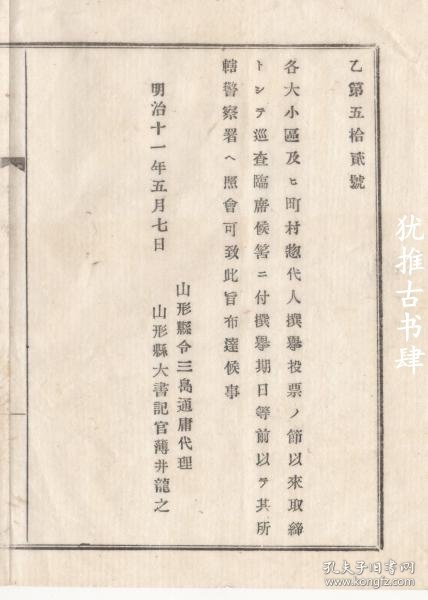 乙第五拾貳號
各大小區及ヒ町村惣代人撰擧投票ノ節以來取締
トシテ巡査臨席候筈ニ付撰擧期日等前以テ其所
轄警察署ヘ照會可致此旨布達候事
明治十一年五月七日
山形縣令三島通庸代理
山形縣大書記官薄井龍之
犹推古书肆
孔夫子旧书网
www.kongfz.com